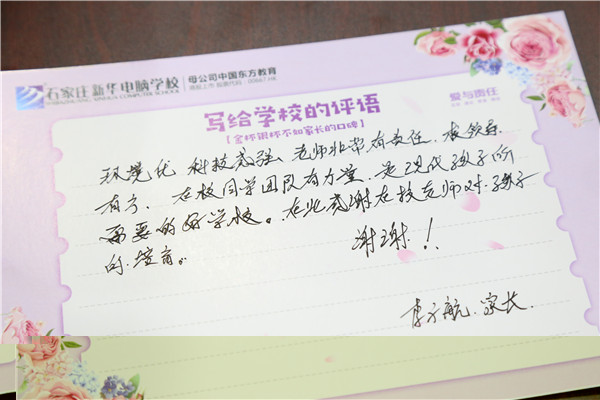 石家庄新华电脑学校
SHIJIAZHUANG XINHUA COMPUTER SCHOOL
母公司中国东方教育
港股上市 股票代码:00667.HK
爱与责任
写给学校的评语
【金杯银杯不如家长的口碑】
环境优 科技感强、老师非常有责任,校领导
有方、在校同学团队有力量,是现代孩子所
需要的好学校。在此感谢在校老师对孩子
的培育。
谢谢!!
李方航 家长